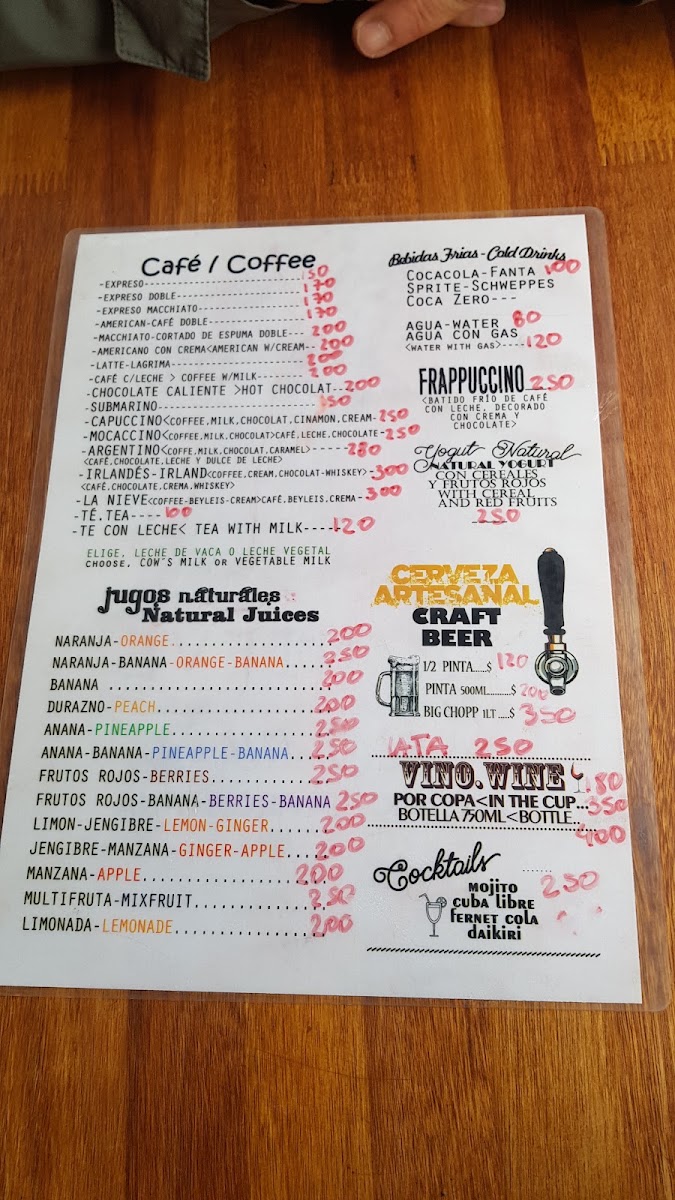 Café / Coffee
-EXPRESO---------------------- 150
-EXPRESO DOBLE---------------- 170
-EXPRESO MACCHIATO------------ 170
-AMERICAN-CAFÉ DOBLE---------- 170
-MACCHIATO-CORTADO DE ESPUMA DOBLE--- 200
-AMERICANO CON CREMA<AMERICAN W/CREAM-- 200
-LATTE-LAGRIMA---------------- 200
-CAFÉ C/LECHE > COFFEE W/MILK------- 200
-CHOCOLATE CALIENTE >HOT CHOCOLAT--200
-SUBMARINO-------------------
-CAPUCCINO<COFFEE.MILK.CHOCOLAT.CINAMON.CREAM-250
-MOCACCINO<COFFEE.MILK.CHOCOLAT>CAFÉ.LECHE.CHOCOLATE-250
-ARGENTINO<COFFEE.MILK.CHOCOLAT.CARAMEL>------280
<CAFÉ.CHOCOLATE.LECHE Y DULCE DE LECHE>
-IRLANDÉS-IRLAND<COFFEE.CREAM.CHOCOLAT-WHISKEY>-300
<CAFÉ.CHOCOLATE.CREMA.WHISKEY>
-LA NIEVE<COFFEE-BEYLEIS-CREAM>CAFÉ.BEYLEIS.CREMA-300
-TÉ.TEA---- 100
-TE CON LECHE< TEA WITH MILK-----120
ELIGE, LECHE DE VACA O LECHE VEGETAL
CHOOSE, COW'S MILK OR VEGETABLE MILK
jugos naturales
Natural Juices
NARANJA-ORANGE.....................200
NARANJA-BANANA-ORANGE-BANANA......250
BANANA ...........................200
DURAZNO-PEACH......................200
ANANA-PINEAPPLE....................250
ANANA-BANANA-PINEAPPLE-BANANA.....250
FRUTOS ROJOS-BERRIES...............250
FRUTOS ROJOS-BANANA-BERRIES-BANANA 250
LIMON-JENGIBRE-LEMON-GINGER.......200
JENGIBRE-MANZANA-GINGER-APPLE.....200
MANZANA-APPLE......................200
MULTIFRUTA-MIXFRUIT................250
LIMONADA-LEMONADE..................200
Bebidas Frias-Cold Drinks
COCACOLA-FANTA 100
SPRITE-SCHWEPPES
COCA ZERO---
AGUA-WATER 80
AGUA CON GAS
<WATER WITH GAS>----120
FRAPPUCCINO 250
<BATIDO FRÍO DE CAFÉ
CON LECHE, DECORADO
CON CREMA Y
CHOCOLATE>
Yogut Natural
NATURAL YOGURT
CON CEREALES
Y FRUTOS ROJOS
WITH CEREAL
AND RED FRUITS
250
CERVEZA
ARTESANAL
CRAFT
BEER
1/2 PINTA.....$ 120
PINTA 500ML.........$ 200
BIG CHOPP 1LT .....$ 350
LATA 250
VINO.WINE 80
POR COPA<IN THE CUP...350
BOTELLA 750ML<BOTTLE...
400
Cocktails .......
mojito 250
cuba libre
fernet cola
daikiri